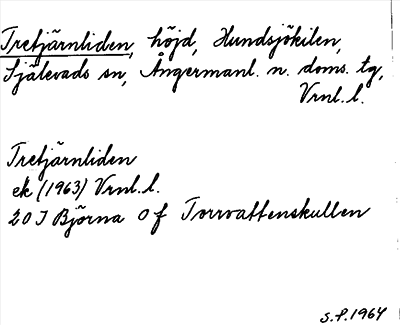 Trefjärnliden, höjd, Hundsjökilen,
Själevads sn, Ångermanl. n. doms. tg,
Vrnl. l.
Trefjärnliden
ek (1963) Vrnl. l.
20 I Björna 0 f Torrvattenskullen
S.P. 1964